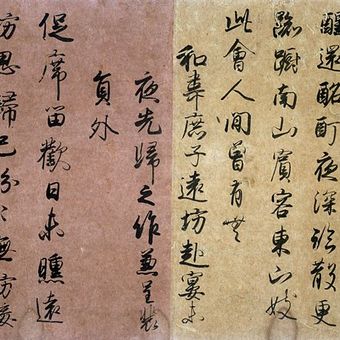 醒還酩酊夜深臨散更
踟躕南山賓客東山妓
此會人間曾有無
和韋庶子遠坊赴宴未
夜先歸之作兼呈裴
員外
促席留歡日未曛遠
坊思歸已紛〻無妨按